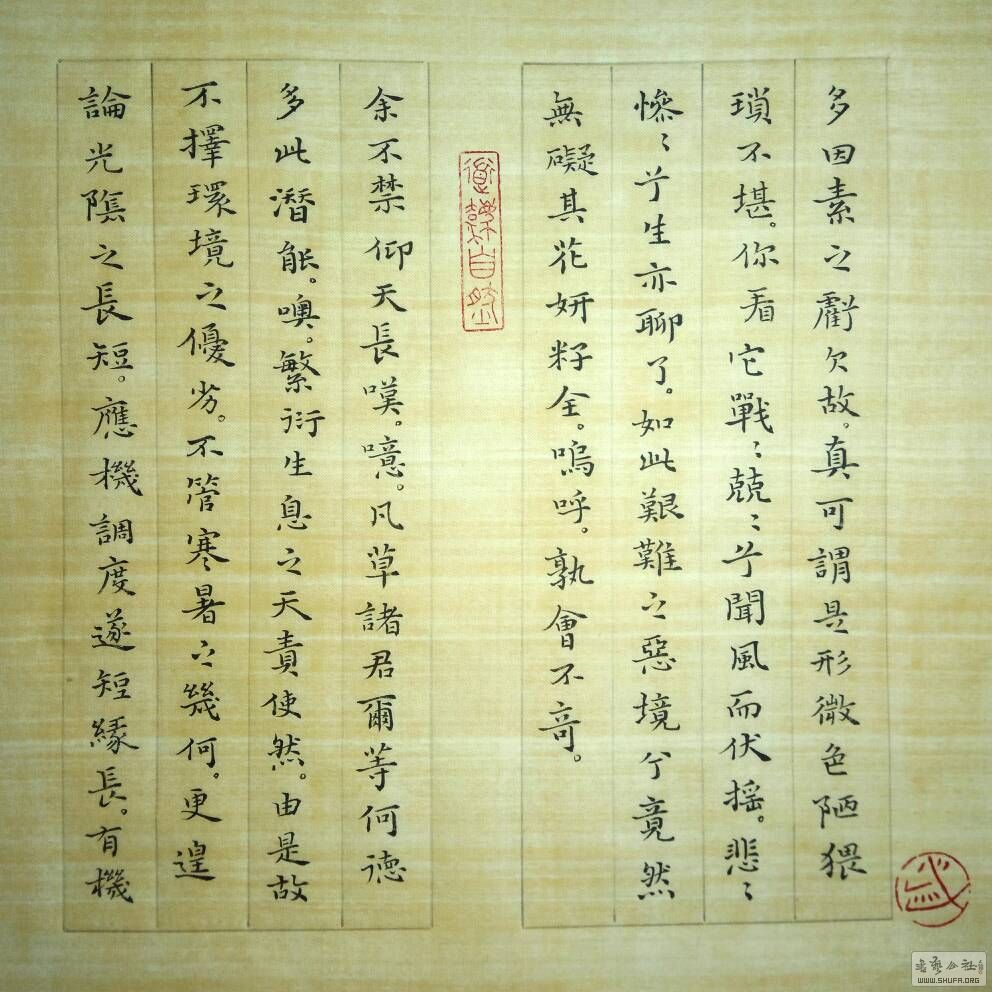 多因素之虧欠故。真可謂是形微色陋猥
瑣不堪。你看它戰〻兢〻兮聞風而伏摇。悲〻
慘〻兮生亦聊了。如此艱難之惡境兮竟然
無礙其花妍籽全。嗚呼。孰會不奇。
余不禁仰天長嘆。噫。凡草諸君爾等何德
多此潛能。噢。繁衍生息之天責使然。由是故
不擇環境之優劣。不管寒暑之幾何。更遑
論光陰之長短。應機調度遂短緣長。有機
WWW.SHUFA.ORG